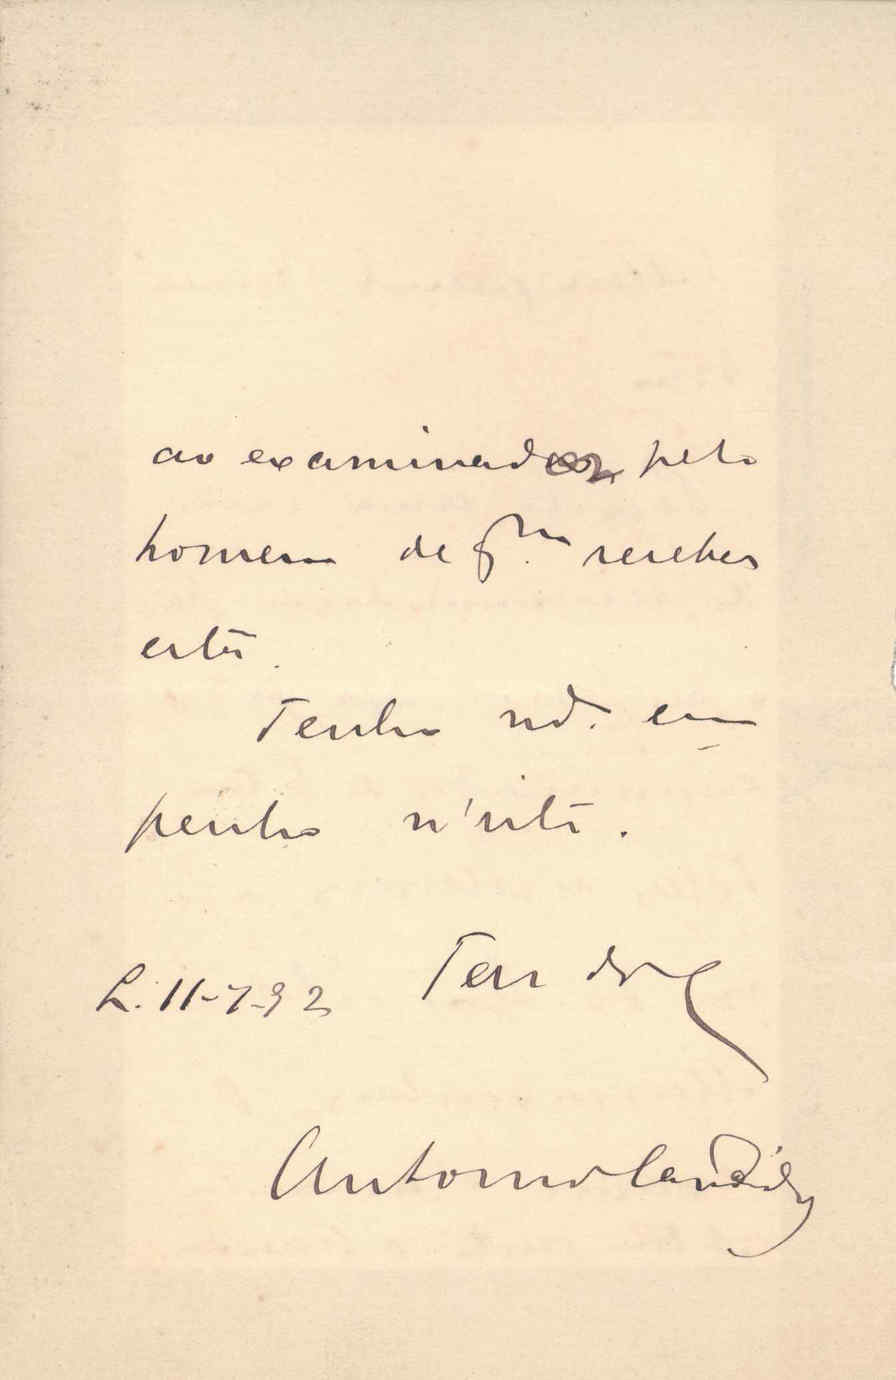 ao examinador, pelo
homem de q.m receber
esta.
Tenho nd. em-
penho n'isto.
L. 11-7-92
Antonio Candido